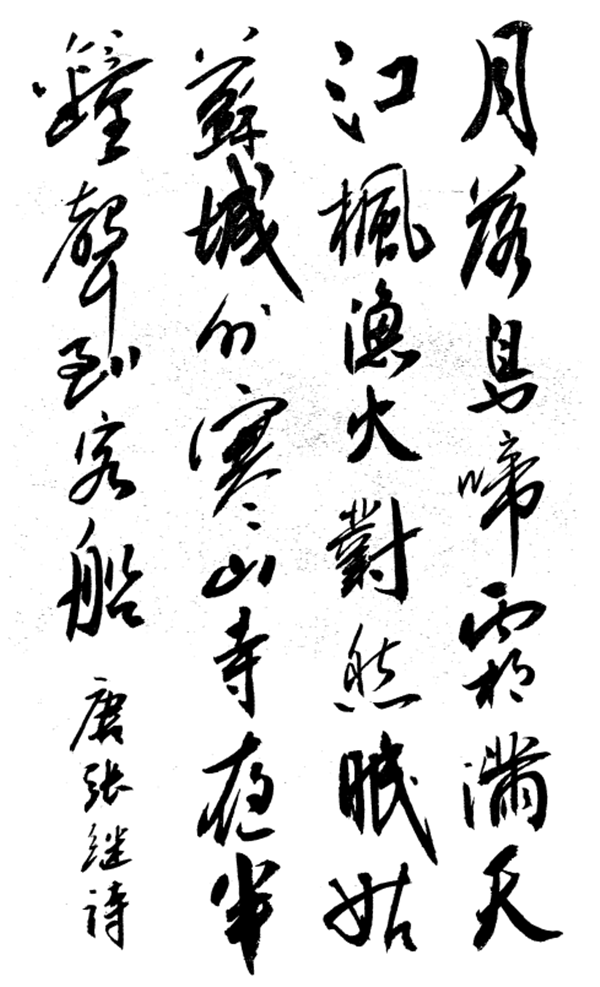 月落烏啼霜滿天
江楓漁火對愁眠姑
蘇城外寒山寺夜半
鐘聲到客船
唐张继诗